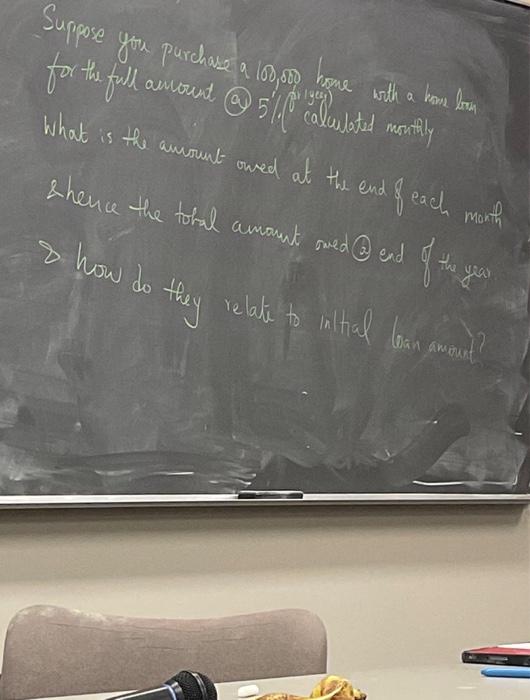 Suppose you purchase a 100,000 home with a home loan
for the full amount @ 5% (for 1 year) calculated monthly
What is the amount owed at the end of each month
& hence the total amount owed @ end of the year
& how do they relate to initial loan amount?